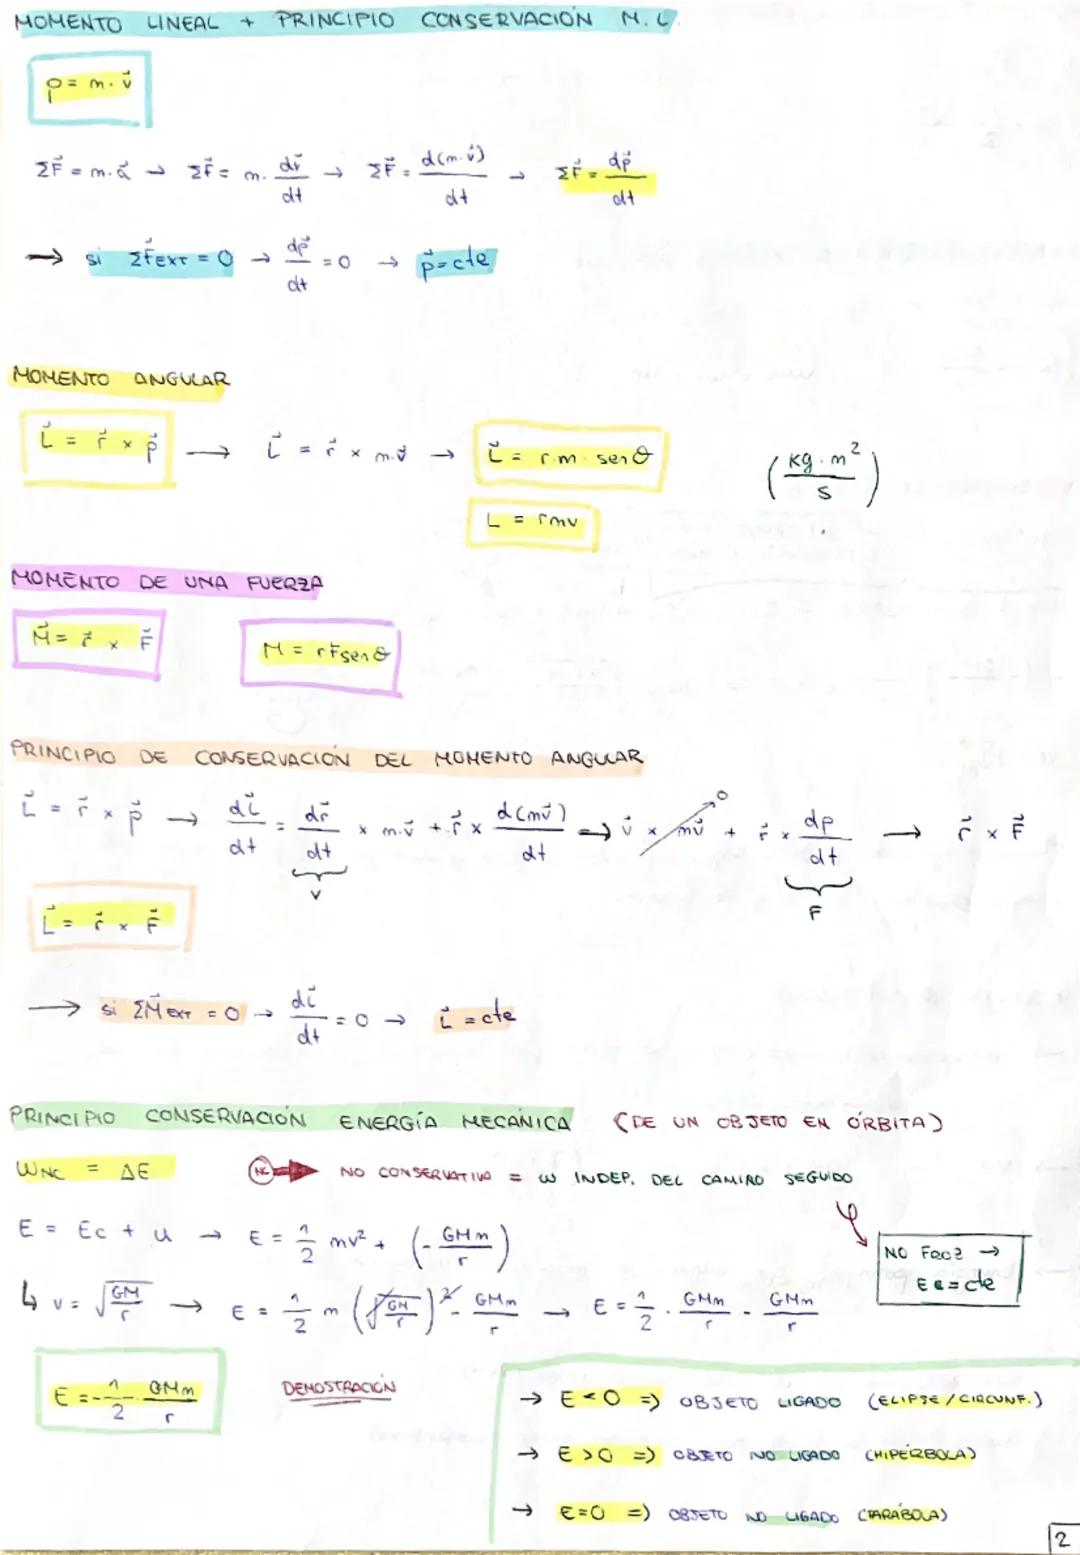 MOMENTO LINEAL + PRINCIPIO CONSERVACIÓN M.L.
p = m·v⃗
ΣF⃗ = m·a⃗ → ΣF⃗ = m· dv⃗/dt → ΣF⃗ = d(m·v⃗)/dt → ΣF⃗ = dp⃗/dt
→ si ΣF⃗EXT = 0 → dp⃗/dt = 0 → p⃗ = cte
MOMENTO ANGULAR
L⃗ = r⃗ × p⃗ → L⃗ = r⃗ × m·v⃗ → L⃗ = r·m· senθ (kg·m²/s)
L = rmv
MOMENTO DE UNA FUERZA
M⃗ = r⃗ × F⃗ M = rFsenθ
PRINCIPIO DE CONSERVACIÓN DEL MOMENTO ANGULAR
L⃗ = r⃗ × p⃗ → dL⃗/dt = dr⃗/dt × m·v⃗ + r⃗ × d(mv⃗)/dt → v⃗ × mv⃗ 0 + r⃗ × dp/dt → r⃗ × F⃗
v F
L⃗ = r⃗ × F⃗
→ si ΣM⃗EXT = 0 → dL⃗/dt = 0 → L⃗ = cte
PRINCIPIO CONSERVACIÓN ENERGÍA MECÁNICA (DE UN OBJETO EN ÓRBITA)
WNC = ΔE NC → NO CONSERVATIVA = W INDEP. DEL CAMINO SEGUIDO
E = Ec + U → E = 1/2 mv² + (- GMm/r)
NO FROZ → E = cte
↳ v = √(GM/r) → E = 1/2 m (√(GM/r))² - GMm/r → E = 1/2 · GMm/r - GMm/r
E = - 1/2 · GMm/r DEMOSTRACIÓN
→ E < 0 => OBJETO LIGADO (ELIPSE / CIRCUNF.)
→ E > 0 => OBJETO NO LIGADO (HIPÉRBOLA)
→ E = 0 => OBJETO NO LIGADO (PARÁBOLA)
2